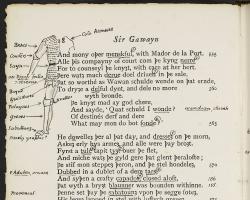 Sir Gawayn
And mony oþer menskful, with Mador de la Port. 555
Alle þis compayny of court com þe kyng nerre
For to counseyl þe knyȝt, with care at her hert.
Þere watȝ much derue doel driuen in þe sale
Þat so worthé as Wawan schulde wende on þat ernde,
To dryȝe a delful dynt, and dele no more 560
wyth bronde.
Þe knyȝt mad ay god chere,
And sayde, 'Quat schuld I wonde?
Of destinés derf and dere
What may mon do bot fonde?' 565
He dowelleȝ þer al þat day, and dresses on þe morn,
Askeȝ erly hys armeȝ, and alle were þay broȝt.
Fyrst a tulé tapit tyȝt ouer þe flet,
And miche watȝ þe gyld gere þat glent þeralofte;
Þe stif mon steppeȝ þeron, and þe stel hondeleȝ, 570
Dubbed in a dublet of a dere tars,
And syþen a crafty capados, closed aloft,
Þat wyth a bryȝt blaunner was bounden withinne.
Þenne set þay þe sabatounȝ vpon þe segge foteȝ,
His legeȝ lapped in stel with luflych greueȝ